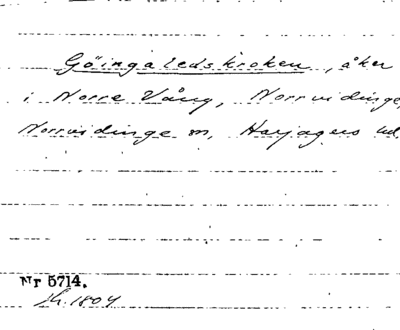 Göingaledskroken, åker
i Norre Vång, Norrvidinge,
Norrvidinge sn, Harjagers hd
Nr 5714.
1804